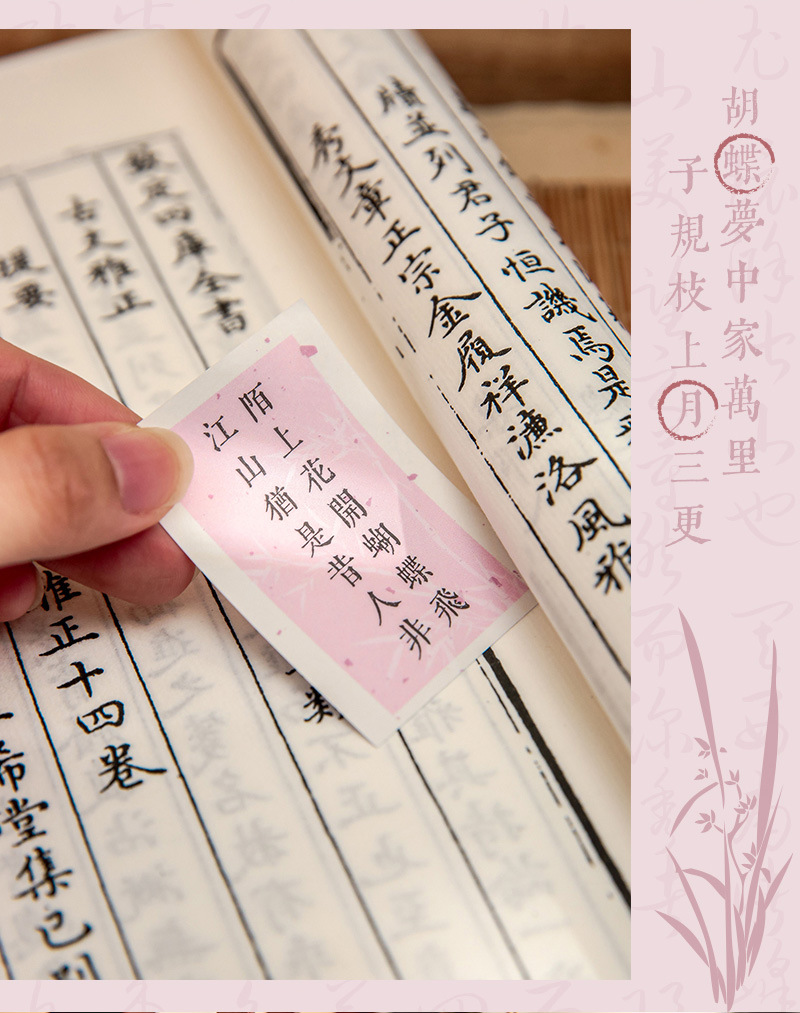 胡蝶夢中家萬里
子規枝上月三更
牘並列君子恒譏焉是
秀文章正宗金履祥濂洛風雅
陌上花開蝴蝶飛
江山猶是昔人非
欽定四庫全書
古文雅正
提要
雅正十四卷
希堂集已別